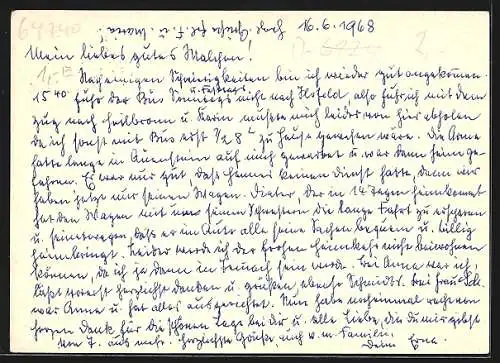 64740 herzl. Grüße für F. u. Mara! 16.6.1968
Mein liebes gutes Malchen!
1,- Nach einigen Schwierigkeiten bin ich wieder gut angekommen.
15 40 fuhr der Bus Sonntags u. Festtags nicht nach Ilsfeld also fuhr ich mit dem
Zug nach Heilbronn u. Karin mußte mich leider von hier abholen
da ich sonst mit Bus erst 1/2 8 h zu Hause gewesen wäre. Die Arme
hatte lange in Auenstein auf mich gewartet u. war dann heim ge-
fahren. Es war nur gut, daß keinen Dienst hatte, denn wir
haben jetzt nur seinen Wagen. Dieter, der in 14 Tagen heimkommt
hat den Wagen mit um seinen Schwestern die lange Fahrt zu ersparen
u. deswegen, daß er im Auto alle seine Sachen bequem u. billig
heimbringt. Leider werde ich der großen Heimkehr nicht beiwohnen
können, da ich ja dann in sein werde. Bei Anna war ich,
läßt vorerst herzlichst danken u. grüßen, ebenso Schmidts. Bei Frau Sch.
war Anna u. hat alles ausgerichtet. Nun habe nocheinmal recht von
Herzen Dank für die schönen Tage bei dir u. alle Liebe, die du mir gibst
herzlichste Grüße, auch v. m. Familie
Deine Erna.